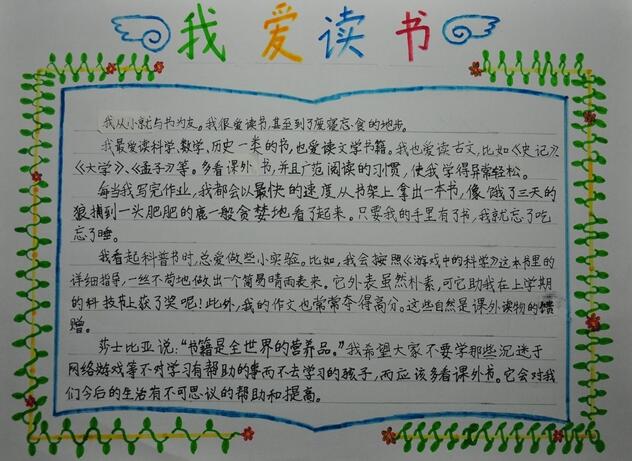 我爱读书
我从小就与书为友。我很爱读书,甚至到了废寝忘食的地步。
我最爱读科学、数学、历史一类的书,也爱读文学书籍。我也爱读古文,比如《史记》、
《大学》、《孟子》等。多看课外书,并且广范阅读的习惯,使我学得异常轻松。
每当我写完作业,我都会以最快的速度从书架上拿出一本书,像饿了三天的
狼捕到一头肥肥的鹿一般贪婪地看了起来。只要我的手里有了书,我就忘了吃
忘了睡。
我看起科普书时,总爱做些小实验。比如,我会按照《游戏中的科学》这本书里的
详细指导,一丝不苟地做出一个简易晴雨表来。它外表虽然朴素,可它助我在上学期
的科技节上获了奖呢!此外,我的作文也常常夺得高分。这些自然是课外读物的馈
赠。
莎士比亚说:“书籍是全世界的营养品。”我希望大家不要学那些沉迷于
网络游戏等不对学习有帮助的事而不去学习的孩子,而应该多看课外书。它会对我
们今后的生活有不可思议的帮助和提高。